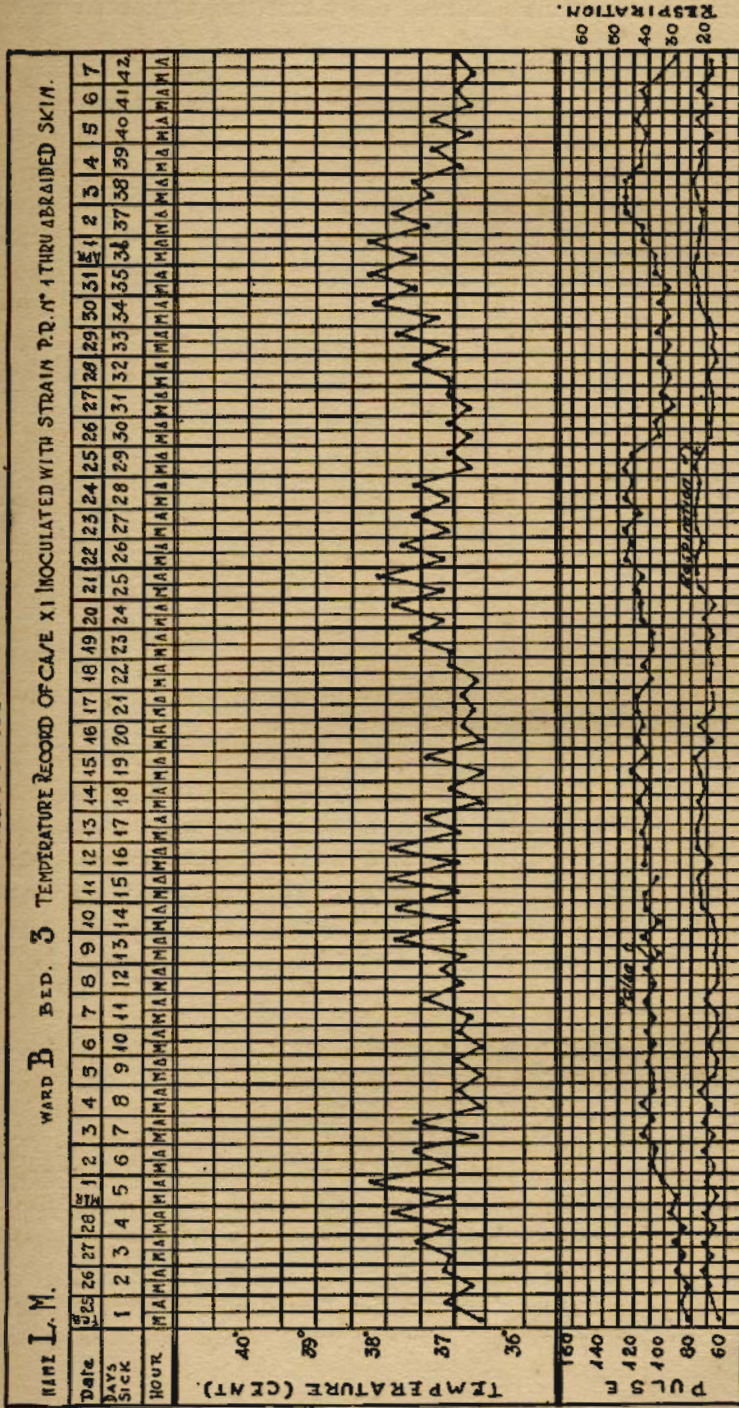 NAME L. M. WARD B BED. 3 TEMPERATURE RECORD OF CASE XI INOCULATED WITH STRAIN P.R. Nº 1 THRU ABRAIDED SKIN.
Date FEB 25 26 27 28 MAR 1 2 3 4 5 6 7 8 9 10 11 12 13 14 15 16 17 18 19 20 21 22 23 24 25 26 27 28 29 30 31 1 2 3 4 5 6 7
DAYS SICK 1 2 3 4 5 6 7 8 9 10 11 12 13 14 15 16 17 18 19 20 21 22 23 24 25 26 27 28 29 30 31 32 33 34 35 36 37 38 39 40 41 42
HOUR M A M A M A M A M A M A M A M A M A M A M A M A M A M A M A M A M A M A M A M A M A M A M A M A M A M A M A M A M A M A M A M A M A M A M A M A M A M A M A M A M A M A
TEMPERATURE (CENT).
40°
39°
38°
37
36°
PULSE
160
140
120
100
80
60
Pulse
Respiration
RESPIRATION.
60
50
40
30
20